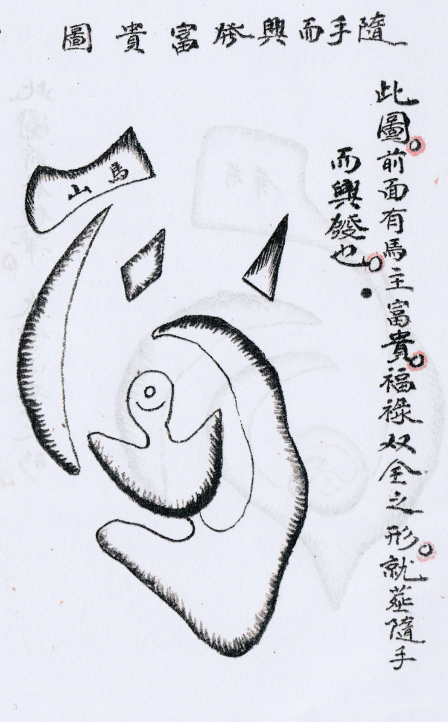 隨手而興發富貴圖
此圖。前面有馬主富貴。福祿双全之形。就莚隨手
而興發也。
馬山